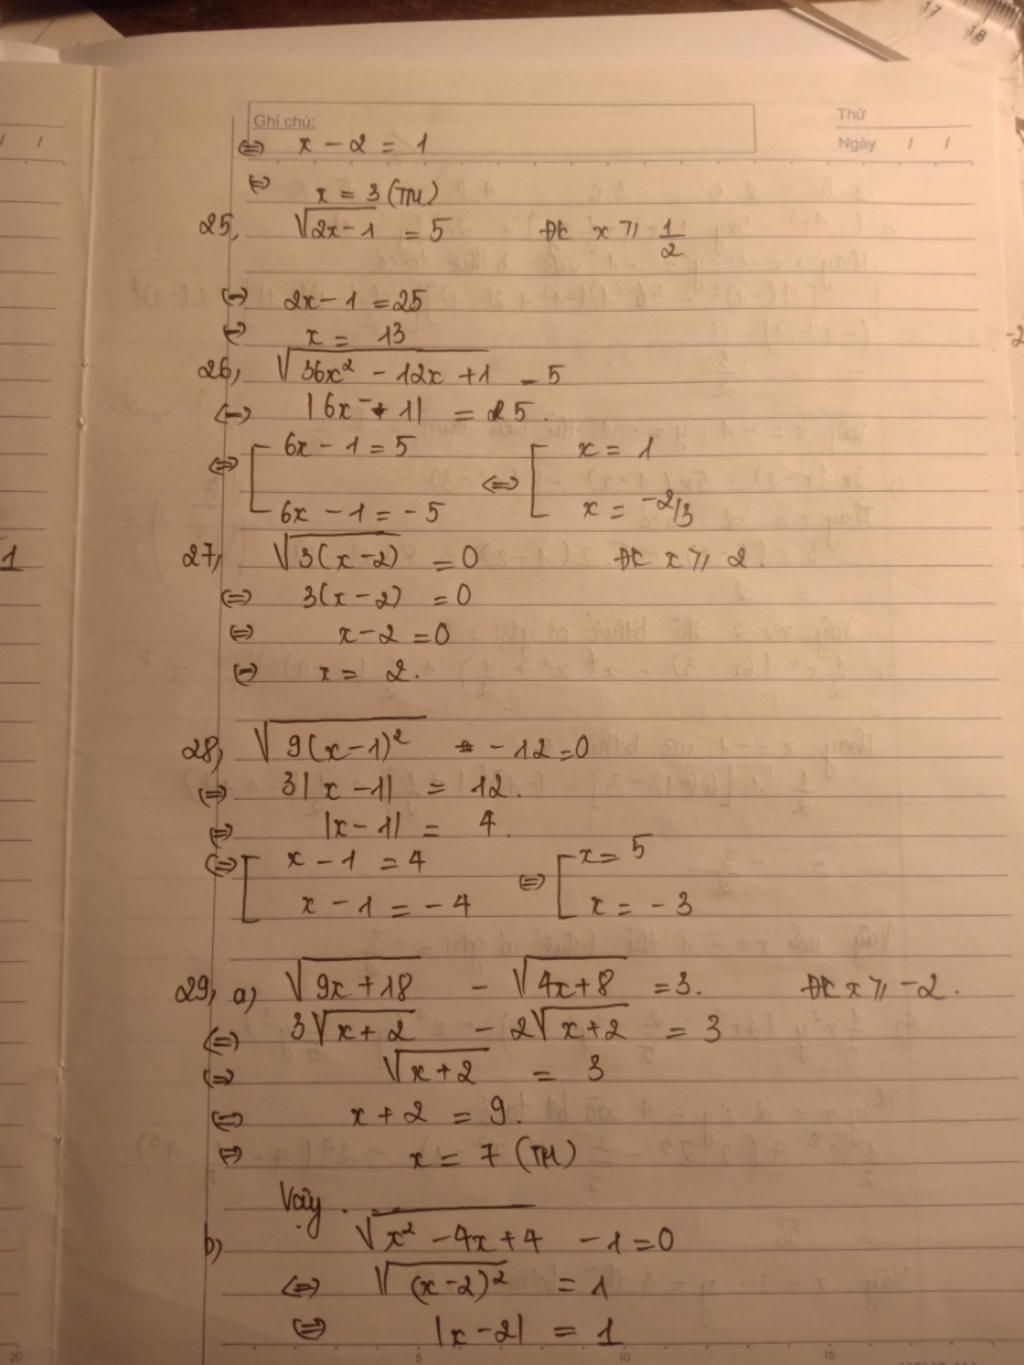 17
18
Ghi chú:
Thứ
Ngày / /
⇔ x - 2 = 1
⇔ x = 3 (TM)
25, √(2x-1) = 5 ĐK x ⩾ 1/2
⇔ 2x - 1 = 25
⇔ x = 13
26, √(36x² - 12x + 1) = 5
⇔ |6x - 1| = 5.
⇔ [ 6x - 1 = 5 ⇔ [ x = 1
6x - 1 = -5 x = -2/3
27, √(3(x-2)) = 0 ĐK x ⩾ 2.
⇔ 3(x-2) = 0
⇔ x - 2 = 0
⇔ x = 2.
28, √(9(x-1)²) - 12 = 0
⇔ 3|x - 1| = 12.
⇔ |x - 1| = 4.
⇔ [ x - 1 = 4 ⇔ [ x = 5
x - 1 = -4 x = -3
29, a) √(9x+18) - √(4x+8) = 3. ĐK x ⩾ -2.
⇔ 3√(x+2) - 2√(x+2) = 3
⇔ √(x+2) = 3
⇔ x + 2 = 9.
⇔ x = 7 (TM)
Vậy.
b) √(x² - 4x + 4) - 1 = 0
⇔ √((x-2)²) = 1
⇔ |x-2| = 1
5 10 15
20
1
-2